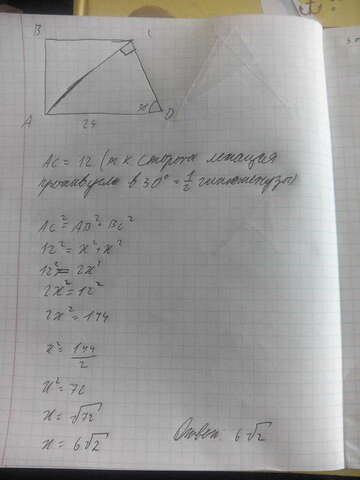 B C
A D
24
AC = 12 (т к сторона лежащая
против угла в 30° = 1/2 гипотенузы)
AC² = AD² + BC²
12² = x² + x²
12² = 2x²
2x² = 12²
2x² = 144
x² = 144/2
x² = 72
x = √72
x = 6√2 Ответ: 6√2